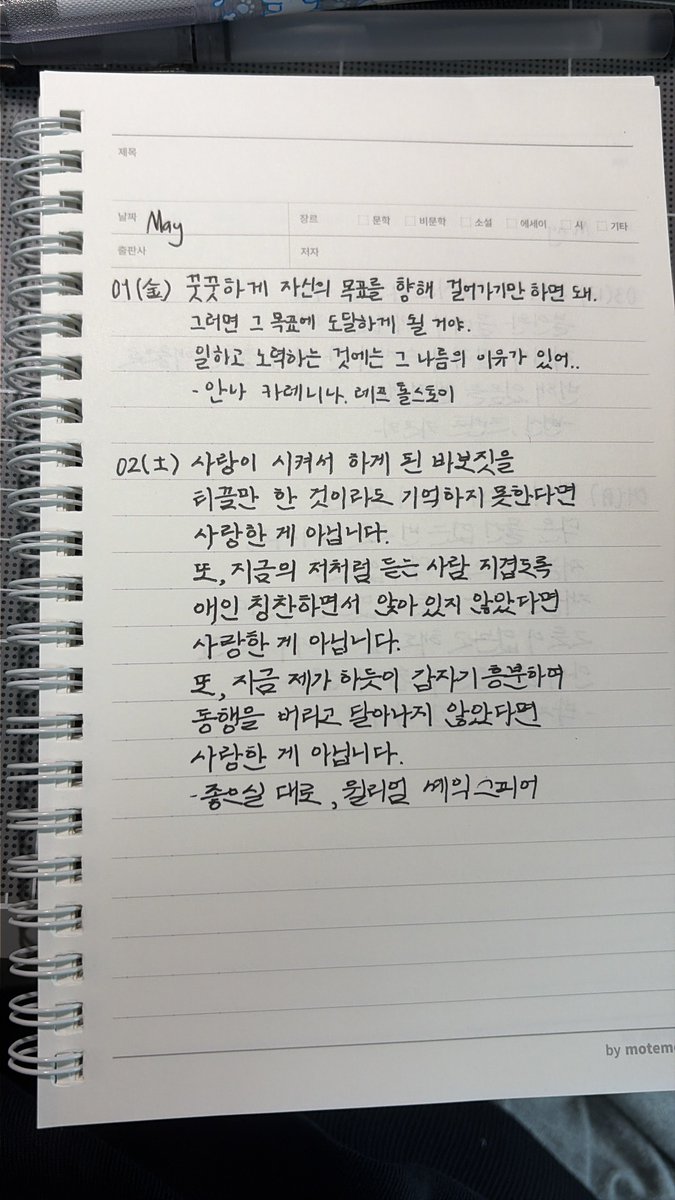 제목
날짜 May 장르 문학 비문학 소설 에세이 시 기타
출판사 저자
01(金) 꿋꿋하게 자신의 목표를 향해 걸어가기만 하면 돼.
그러면 그 목표에 도달하게 될 거야.
일하고 노력하는 것에는 그 나름의 이유가 있어..
- 안나 카레니나. 레프 톨스토이
02(土) 사랑이 시켜서 하게 된 바보짓을
티끌만 한 것이라도 기억하지 못한다면
사랑한 게 아닙니다.
또, 지금의 저처럼 듣는 사람 지겹도록
애인 칭찬하면서 앉아 있지 않았다면
사랑한 게 아닙니다.
또, 지금 제가 하듯이 갑자기 흥분하여
동행을 버리고 달아나지 않았다면
사랑한 게 아닙니다.
- 좋으실 대로, 윌리엄 셰익스피어
by motem